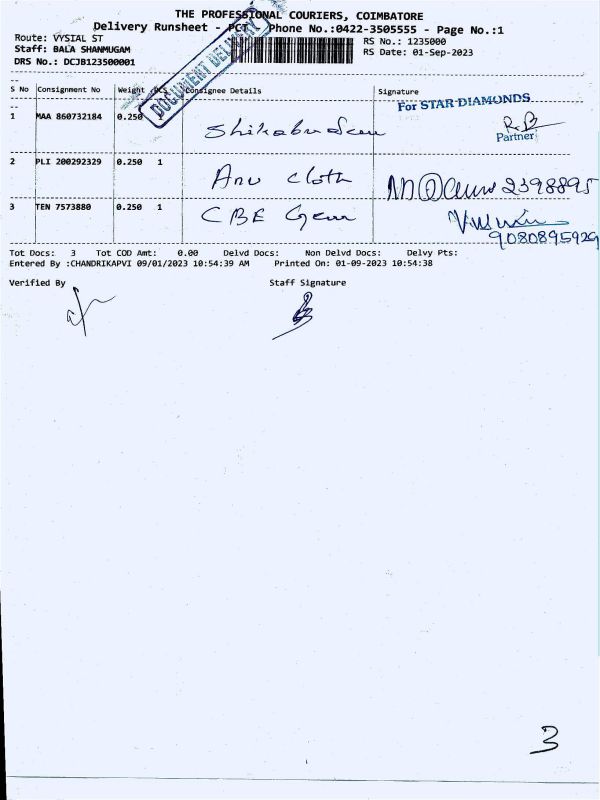 THE PROFESSIONAL COURIERS, COIMBATORE
Delivery Runsheet - PCT Phone No.:0422-3505555 - Page No.:1
Route: VYSIAL ST
RS No.: 1235000
Staff: BALA SHANMUGAM
RS Date: 01-Sep-2023
DRS No.: DCJB123500001
DOCUMENT DELIVERY
S No Consignment No Weight PCS Consignee Details Signature
For STAR DIAMONDS
1 MAA 860732184 0.250
R.B
Partner
2 PLI 200292329 0.250 1
Anu cloth 2398895
3 TEN 7573880 0.250 1
CBE Gem
9080895929
Tot Docs: 3 Tot COD Amt: 0.00 Delvd Docs: Non Delvd Docs: Delvy Pts:
Entered By :CHANDRIKAPVI 09/01/2023 10:54:39 AM Printed On: 01-09-2023 10:54:38
Verified By Staff Signature
3